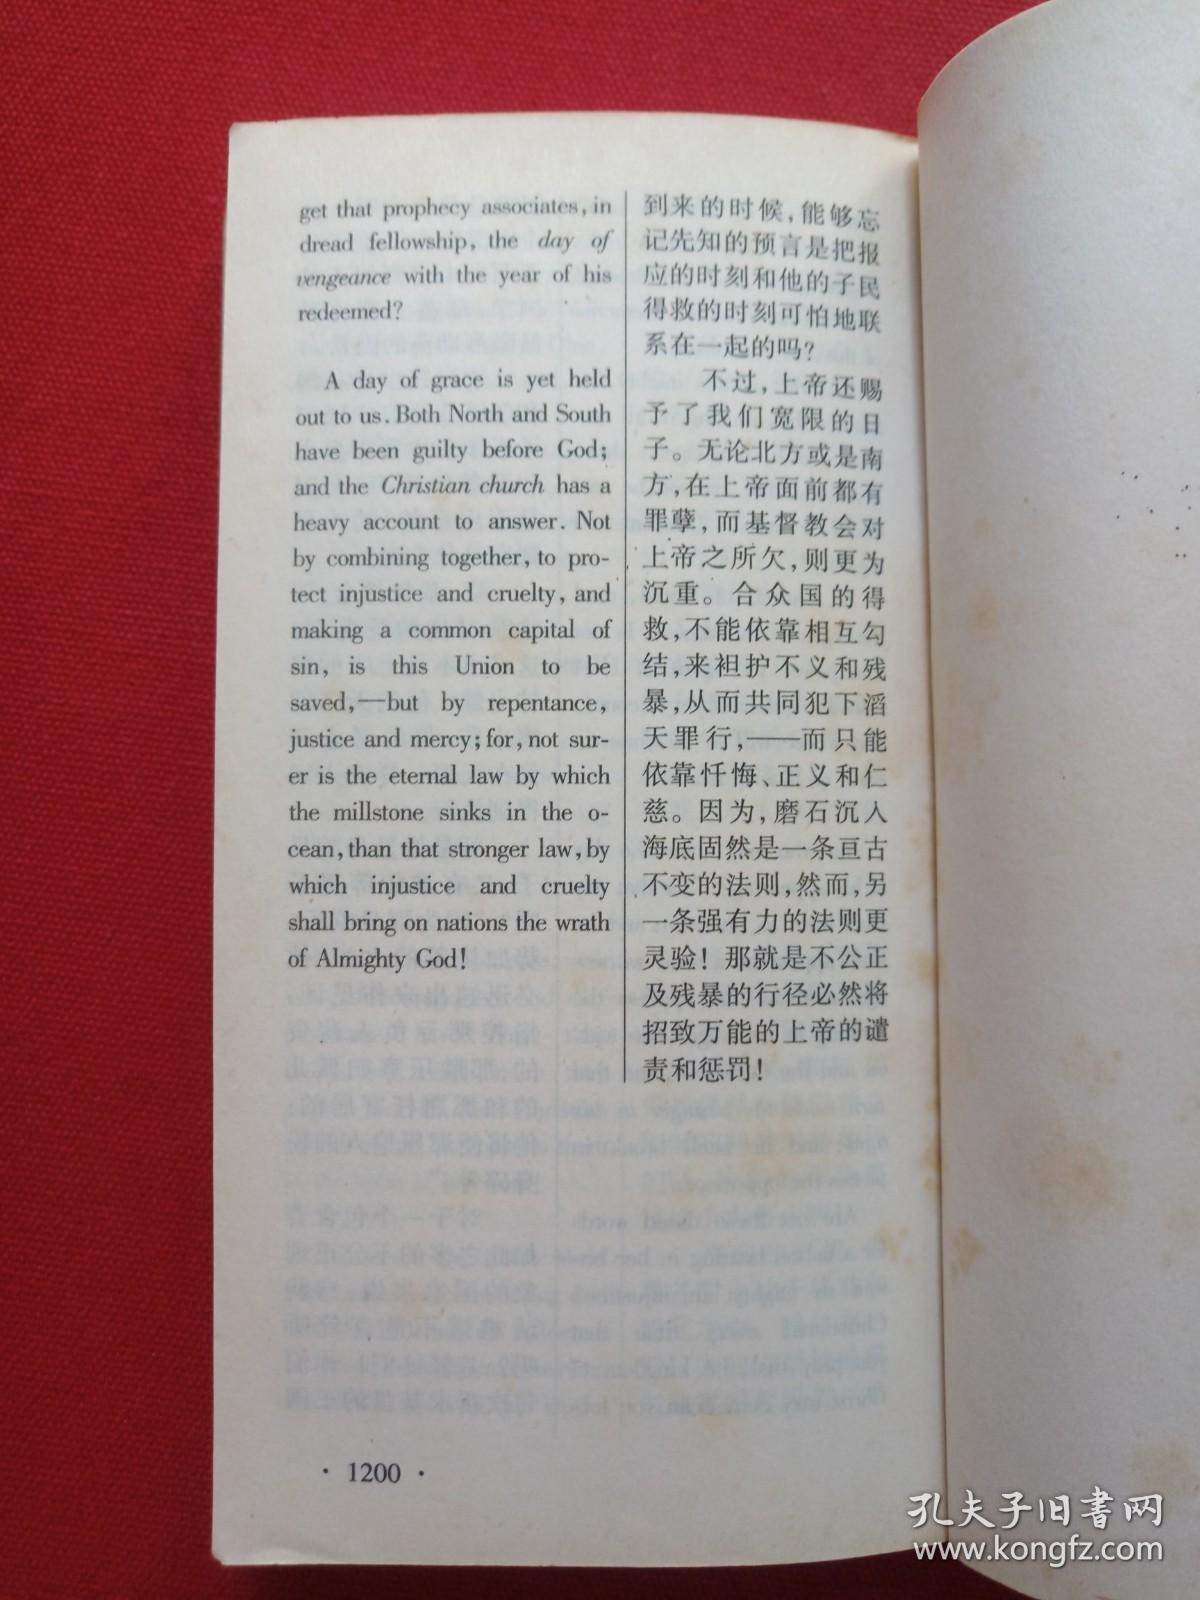 get that prophecy associates, in
dread fellowship, the day of
vengeance with the year of his
redeemed?
A day of grace is yet held
out to us. Both North and South
have been guilty before God;
and the Christian church has a
heavy account to answer. Not
by combining together, to pro-
tect injustice and cruelty, and
making a common capital of
sin, is this Union to be
saved,—but by repentance,
justice and mercy; for, not sur-
er is the eternal law by which
the millstone sinks in the o-
cean, than that stronger law, by
which injustice and cruelty
shall bring on nations the wrath
of Almighty God!
到来的时候,能够忘
记先知的预言是把报
应的时刻和他的子民
得救的时刻可怕地联
系在一起的吗?
不过,上帝还赐
予了我们宽限的日
子。无论北方或是南
方,在上帝面前都有
罪孽,而基督教会对
上帝之所欠,则更为
沉重。合众国的得
救,不能依靠相互勾
结,来袒护不义和残
暴,从而共同犯下滔
天罪行,——而只能
依靠忏悔、正义和仁
慈。因为,磨石沉入
海底固然是一条亘古
不变的法则,然而,另
一条强有力的法则更
灵验!那就是不公正
及残暴的行径必然将
招致万能的上帝的谴
责和惩罚!
· 1200 ·
孔夫子旧书网
www.kongfz.com